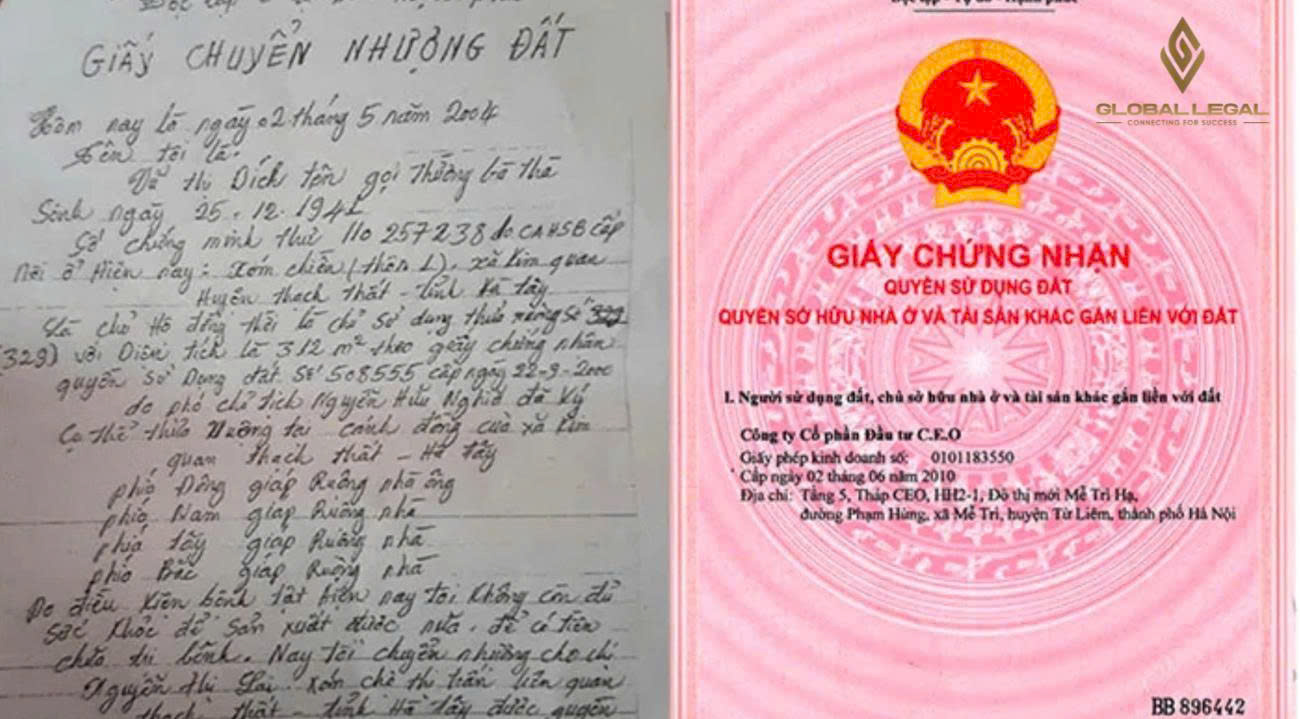 GIẤY CHUYỂN NHƯỢNG ĐẤT
Hôm nay là ngày 02 tháng 5 năm 2004
Tên tôi là:
thị Dích tên gọi thường
Sinh ngày 25.12.1941
Số chứng minh thư 110 257238 do CAHSB cấp
Nơi ở hiện nay: Xóm chiến (thôn 1), xã Kim quan
Huyện thạch thất - tỉnh Hà tây
Là chủ Hộ đồng thời là chủ sử dụng thửa ruộng số 329
(329) với Diện tích là 312 m² theo giấy chứng nhân
quyền Sử Dụng đất. Số 508555 cấp ngày 22-9-2000
do phó chủ tịch Nguyễn Hữu Nghid đã Ký
Cụ thể thửa Ruộng tại cánh đồng của xã Kim
quan thạch thất - Hà tây
phía Đông giáp Ruộng nhà ông
phía Nam giáp Ruộng nhà
phía tây giáp Ruộng nhà
phía Bắc giáp Ruộng nhà
Do điều Kiên bệnh tật hiện nay tôi Không còn đủ
Sức Khỏe để Sản xuất được nữa. để có tiền
chữa trị bệnh. Nay tôi chuyển nhượng cho chị
Nguyễn thị xóm chè thị trấn liên quan
thạch thất - tỉnh Hà tây được quyền
Độc lập - Tự do - Hạnh phúc
GLOBAL LEGAL
CONNECTING FOR SUCCESS
GIẤY CHỨNG NHẬN
QUYỀN SỬ DỤNG ĐẤT
QUYỀN SỞ HỮU NHÀ Ở VÀ TÀI SẢN KHÁC GẮN LIỀN VỚI ĐẤT
I. Người sử dụng đất, chủ sở hữu nhà ở và tài sản khác gắn liền với đất
Công ty Cổ phần Đầu tư C.E.O
Giấy phép kinh doanh số: 0101183550
Cấp ngày 02 tháng 06 năm 2010
Địa chỉ: Tầng 5, Tháp CEO, HH2-1, Đô thị mới Mễ Trì Hạ,
đường Phạm Hùng, xã Mễ Trì, huyện Từ Liêm, thành phố Hà Nội
BB 896442